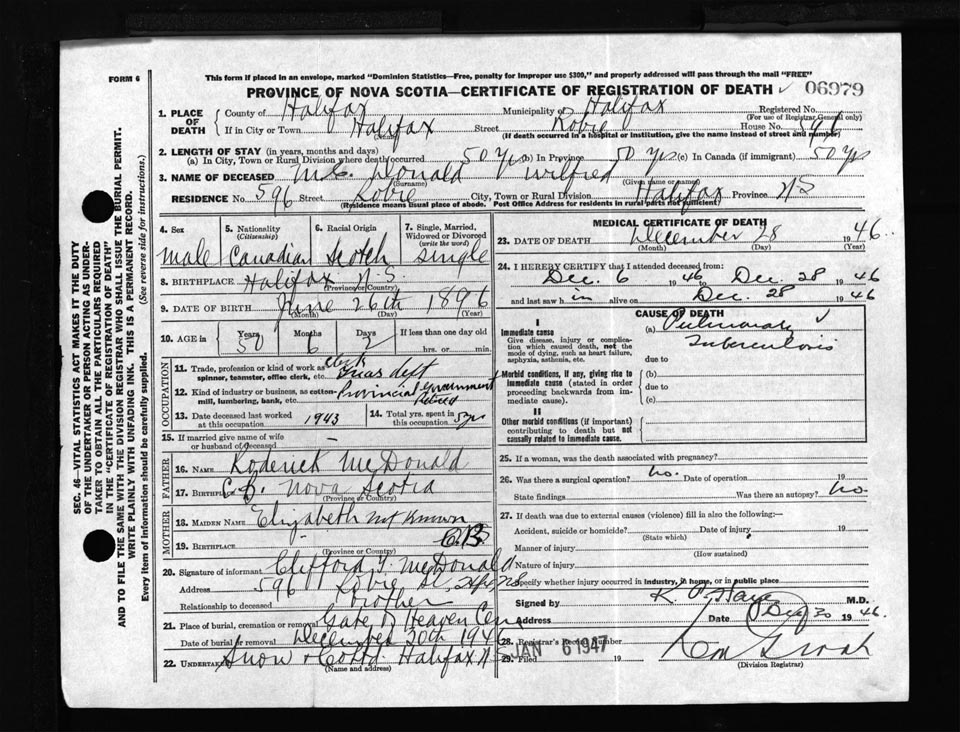 FORM 6
This form if placed in an envelope, marked "Dominion Statistics—Free, penalty for improper use $300," and properly addressed will pass through the mail "FREE"
PROVINCE OF NOVA SCOTIA—CERTIFICATE OF REGISTRATION OF DEATH 06979
1. PLACE OF DEATH
County of Halifax Municipality of Halifax Registered No.
(For use of Registrar General only)
If in City or Town Halifax Street Robie House No. 596
(Name)
(If death occurred in a hospital or institution, give the name instead of street and number)
2. LENGTH OF STAY (in years, months and days)
(a) In City, Town or Rural Division where death occurred 50 yrs (b) In Province 50 yrs (c) In Canada (if immigrant) 50 yrs
3. NAME OF DECEASED McDonald Wilfred
(Surname) (Given name or names)
RESIDENCE No. 596 Street Robie City, Town or Rural Division Halifax Province N S
(Residence means usual place of abode. Post Office Address for residents in rural parts not sufficient)
4. Sex
male
5. Nationality
(Citizenship)
Canadian
6. Racial Origin
Scotch
7. Single, Married, Widowed or Divorced
(write the word)
Single
8. BIRTHPLACE Halifax N.S.
(Province or Country)
9. DATE OF BIRTH June 26th 1896
(Month) (Day) (Year)
10. AGE in Years 50 Months 6 Days 2 If less than one day old
hrs. or min.
OCCUPATION
11. Trade, profession or kind of work as spinner, teamster, office clerk, etc. clerk
12. Kind of industry or business, as cotton-mill, lumbering, bank, etc. Provincial Government
13. Date deceased last worked at this occupation 1943
14. Total yrs. spent in this occupation 5 yrs
15. If married give name of wife or husband of deceased
FATHER
16. NAME Roderick McDonald
17. Birthplace C.B. Nova Scotia
(Province or Country)
MOTHER
18. MAIDEN NAME Elizabeth not known
19. BIRTHPLACE C.B.
(Province or Country)
20. Signature of informant Clifford J. McDonald
Address 596 Robie St, Hfx, NS
Relationship to deceased brother
21. Place of burial, cremation or removal Gate of Heaven Cem
Date of burial or removal December 30th 1946
22. UNDERTAKER Snow & Co Ltd. Halifax N S
(Name and address)
MEDICAL CERTIFICATE OF DEATH
23. DATE OF DEATH December 28 1946
(Month) (Day)
24. I HEREBY CERTIFY that I attended deceased from:
Dec. 6 1946 to Dec. 28 1946
and last saw him alive on Dec. 28 1946
CAUSE OF DEATH
I
Immediate cause
Give disease, injury or complication which caused death, not the mode of dying, such as heart failure, asphyxia, asthenia, etc.
(a) Pulmonary
Tuberculosis
due to
Morbid conditions, if any, giving rise to immediate cause (stated in order proceeding backwards from immediate cause).
(b)
due to
(c)
II
Other morbid conditions (if important) contributing to death but not causally related to immediate cause.
25. If a woman, was the death associated with pregnancy?
26. Was there a surgical operation? no. Date of operation 19
State findings Was there an autopsy? no
27. If death due to external causes (violence) fill in also the following:—
Accident, suicide or homicide? Date of injury 19
(State which)
Manner of injury
(How sustained)
Nature of injury
Specify whether injury occurred in industry, in home, or in public place
Signed by M.D.
Address Date Dec 30 1946
28. Registrar's Record Number
29. Filed JAN 6 1947 19
(Division Registrar)
SEC. 46—VITAL STATISTICS ACT MAKES IT THE DUTY
OF THE UNDERTAKER OR PERSON ACTING AS UNDER-
TAKER TO OBTAIN ALL THE PARTICULARS REQUIRED
IN THE "CERTIFICATE OF REGISTRATION OF DEATH"
AND TO FILE THE SAME WITH THE DIVISION REGISTRAR WHO SHALL ISSUE THE BURIAL PERMIT.
WRITE PLAINLY WITH UNFADING INK. THIS IS A PERMANENT RECORD.
Every item of information should be carefully supplied. (See reverse side for instructions.)